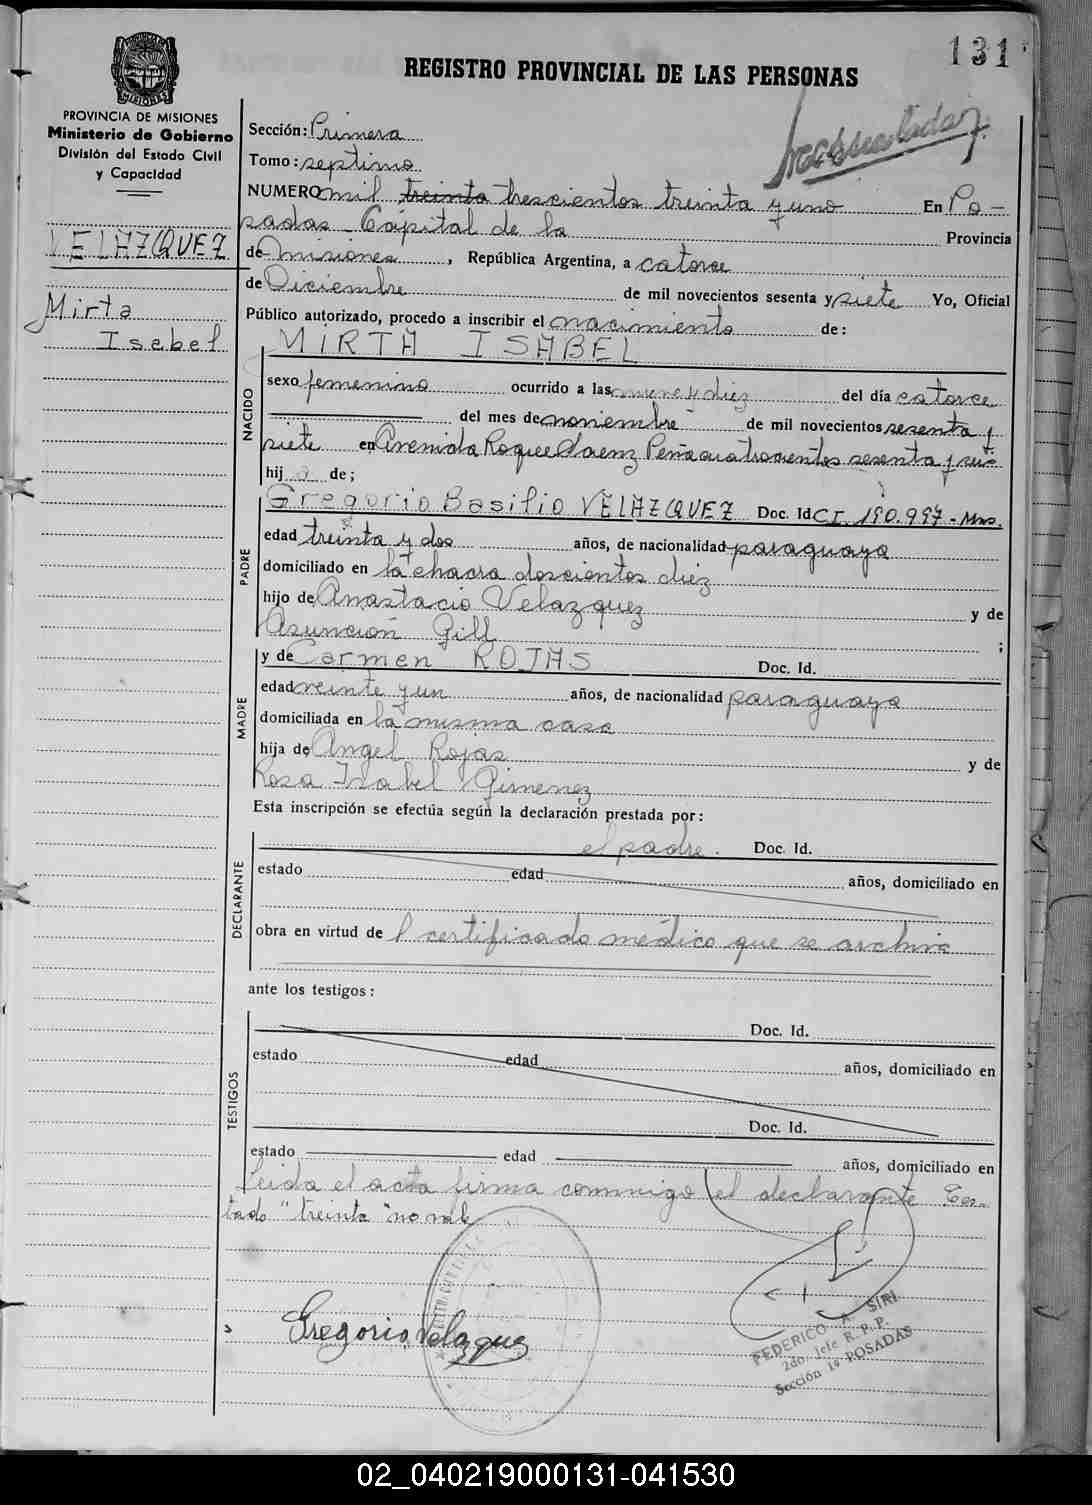 131
REGISTRO PROVINCIAL DE LAS PERSONAS
PROVINCIA DE MISIONES
Ministerio de Gobierno
División del Estado Civil
y Capacidad
VELAZQUEZ
Mirta
Isabel
Sección: Primera
Tomo: septimo
NUMERO mil treinta trescientos treinta y uno En Po-
sadas Capital de la Provincia
de Misiones, República Argentina, a catorce
de Diciembre de mil novecientos sesenta y siete Yo, Oficial
Público autorizado, procedo a inscribir el nacimiento de:
NACIDO
MIRTA ISABEL
sexo femenino ocurrido a las nueve y diez del día catorce
del mes de noviembre de mil novecientos sesenta y
siete en Avenida Roque Saenz Peña cuatrocientos sesenta y seis
hij a de;
PADRE
Gregorio Basilio VELAZQUEZ Doc. Id CI. 190.997 - Mns.
edad treinta y dos años, de nacionalidad paraguaya
domiciliado en la chacra doscientos diez
hijo de Anastacio Velazquez y de
Asunción Gill ;
MADRE
y de Carmen ROJAS Doc. Id.
edad veinte y un años, de nacionalidad paraguaya
domiciliada en la misma casa
hija de Angel Rojas y de
Rosa Isabel Gimenez
Esta inscripción se efectúa según la declaración prestada por:
DECLARANTE
el padre. Doc. Id.
estado edad años, domiciliado en
obra en virtud de l certificado médico que se archiva
ante los testigos:
TESTIGOS
Doc. Id.
estado edad años, domiciliado en
Doc. Id.
estado edad años, domiciliado en
Leida el acta firma conmigo el declarante Tes-
tado "treinta" no vale
Gregorio Velazquez
FEDERICO A. SIRI
2do. Jefe R. P. P.
Sección 1ª POSADAS
02_040219000131-041530